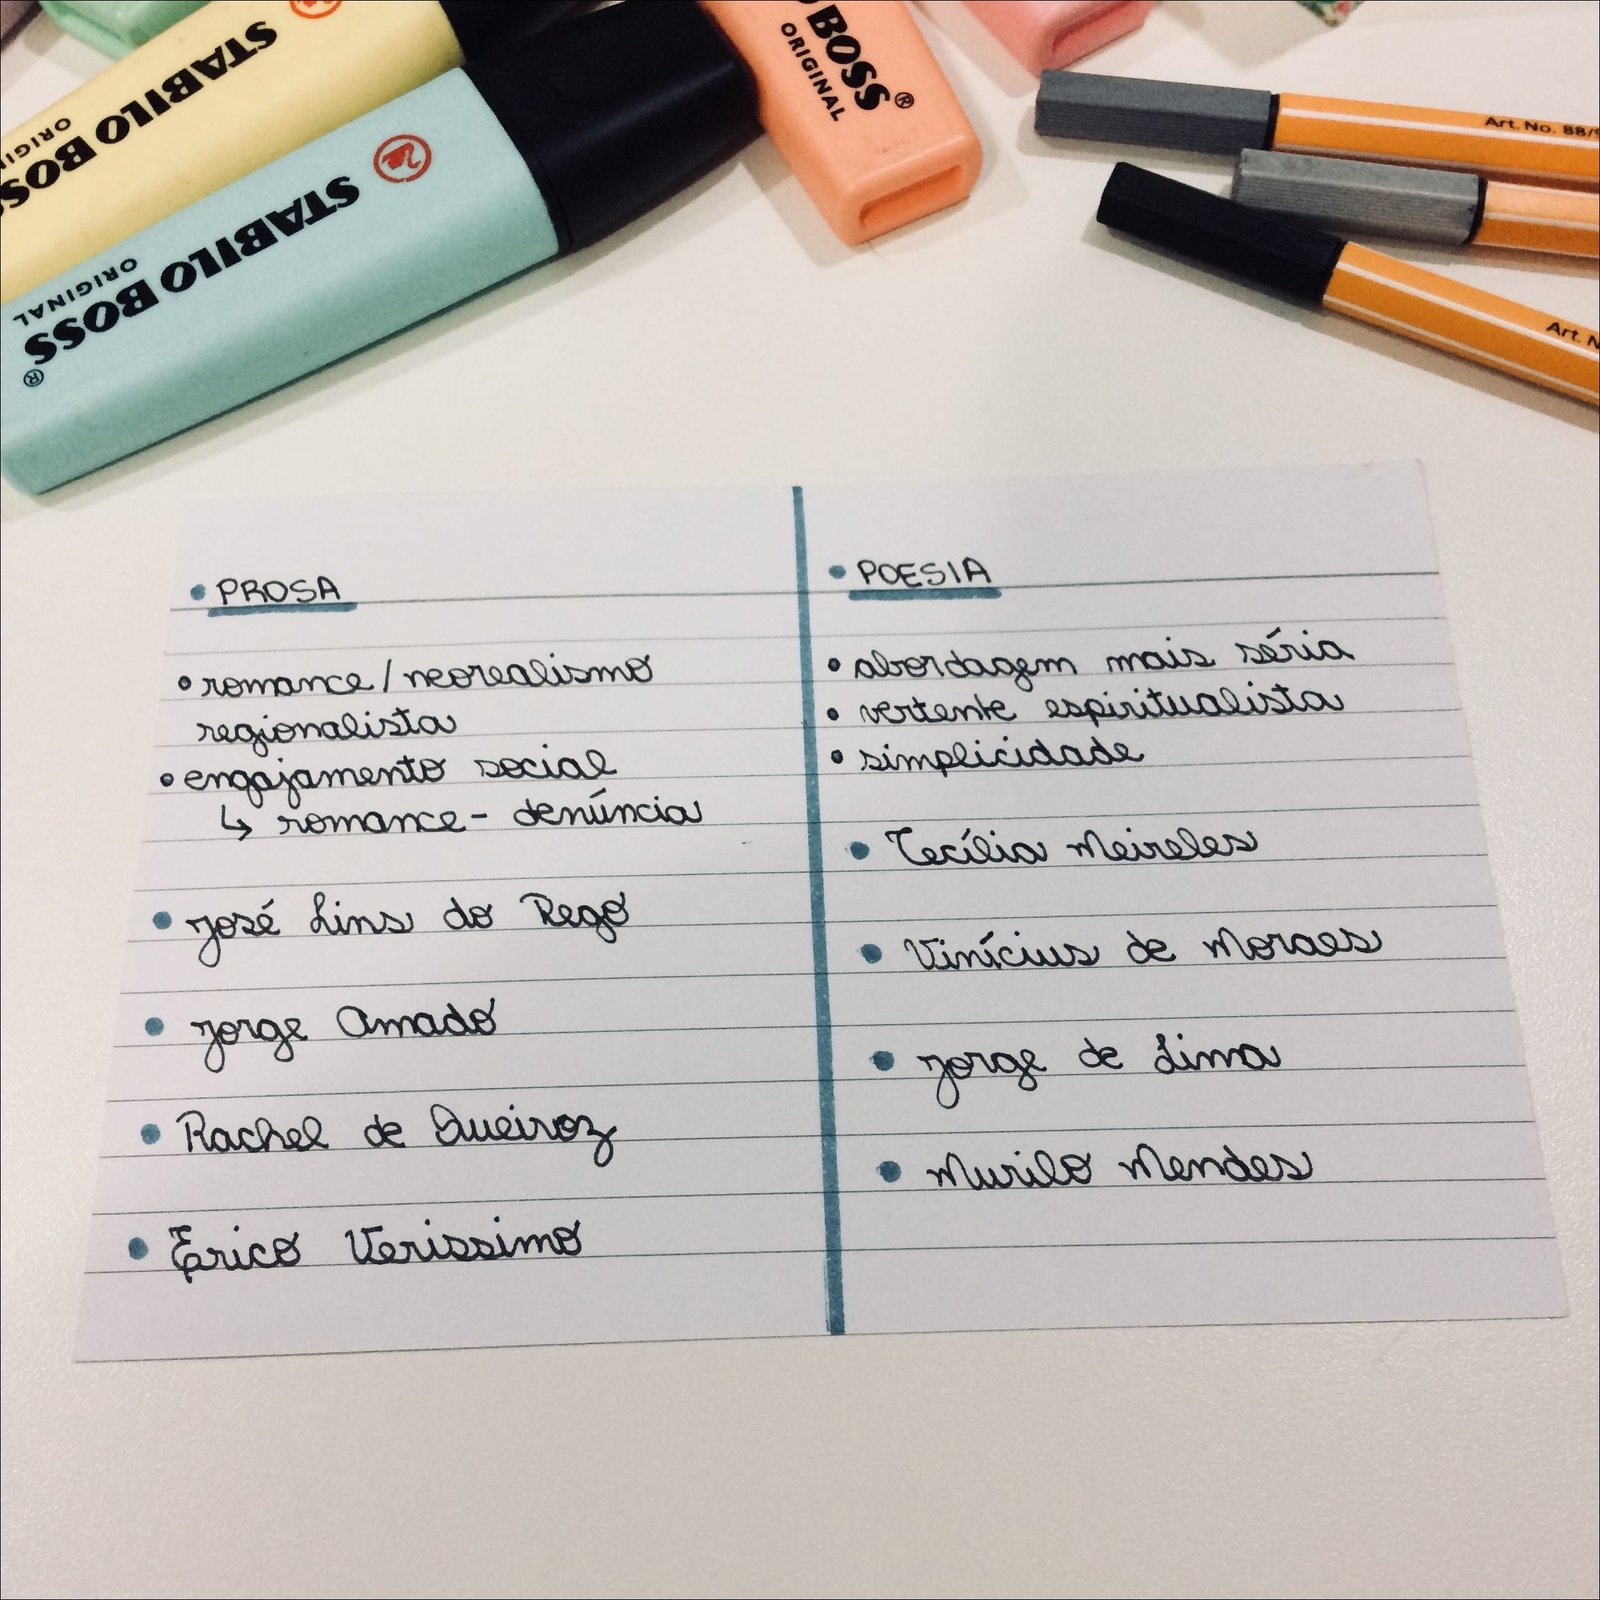 STABILO BOSS
ORIGINAL
STABILO BOSS®
ORIGINAL
BOSS®
ORIGINAL
Art. No. 88/
Art.
• PROSA
• romance/neorealismo
regionalista
• engajamento social
↳ romance - denúncia
• José Lins do Rego
• Jorge Amado
• Rachel de Queiroz
• Erico Verissimo
• POESIA
• abordagem mais séria
• vertente espiritualista
• simplicidade
• Cecília Meireles
• Vinícius de Moraes
• Jorge de Lima
• Murilo Mendes